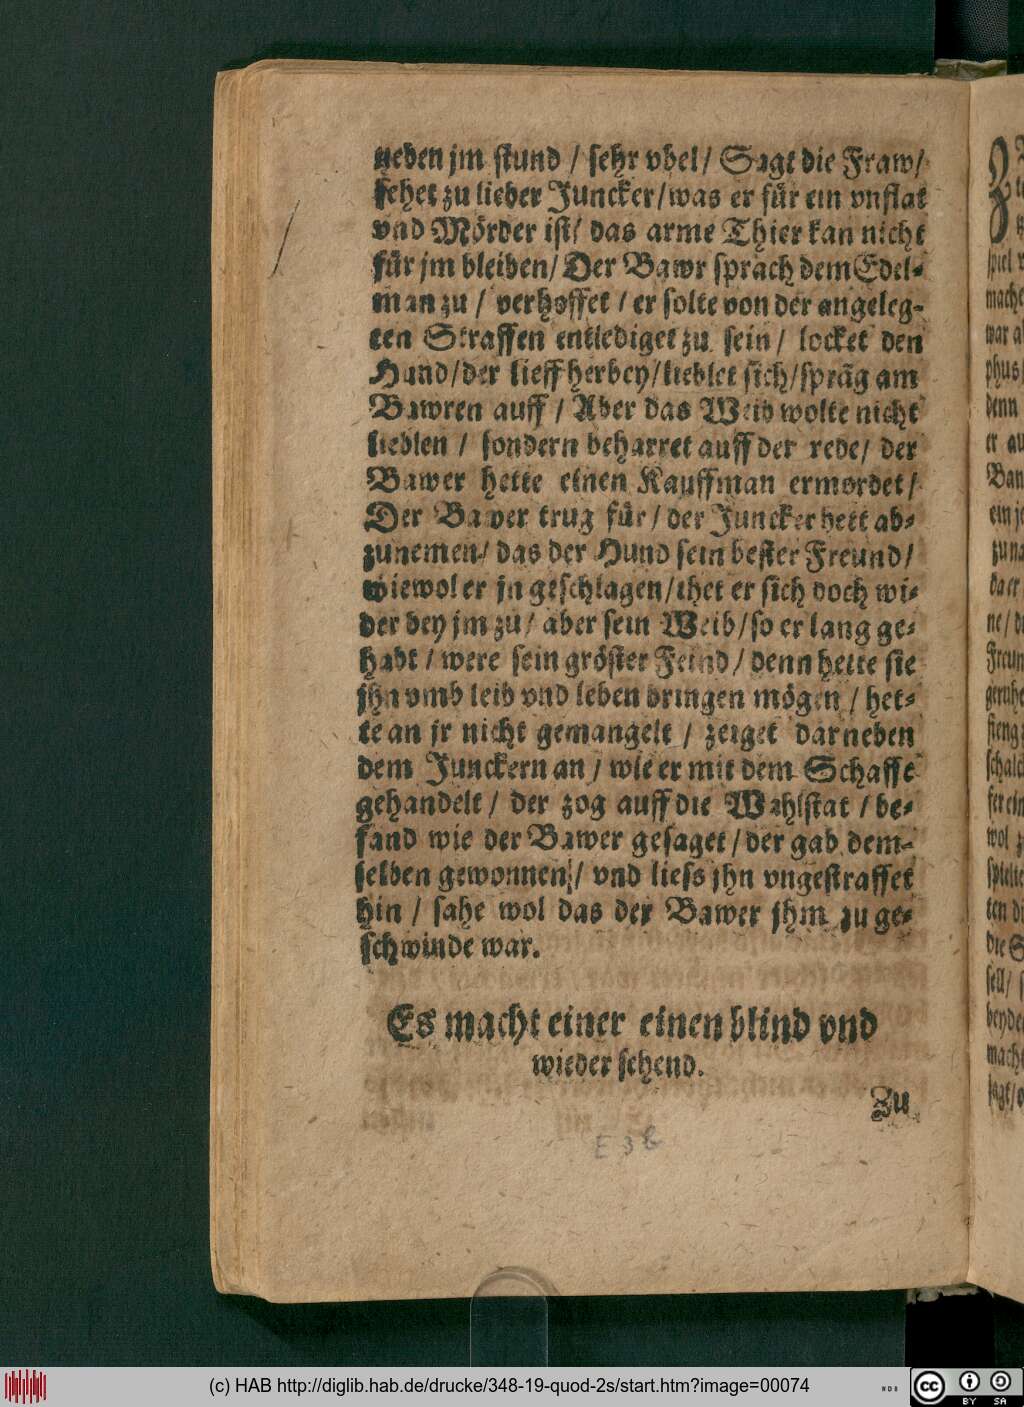 neben jm stund / sehr vbel / Sagt die Fraw /
sehet zu lieber Juncker / was er für ein vnflat
vnd Mörder ist / das arme Thier kan nicht
für jm bleiben / Der Bawr sprach dem Edel-
man zu / verhoffet / er solte von der angeleg-
ten Straffen entlediget zu sein / locket den
Hund / der lieff herbey / lieblet sich / sprāg am
Bawren auff / Aber das Weib wolte nicht
lieblen / sondern beharret auff der rede / der
Bawer hette einen Kauffman ermordet /
Der Bawer trug für / der Juncker hett ab-
zunemen / das der Hund sein bester Freund /
wiewol er jn geschlagen / thet er sich doch wi-
der bey jm zu / aber sein Weib / so er lang ge-
habt / were sein gröster Feind / denn hette sie
jhn vmb leib vnd leben bringen mögen / het-
te an jr nicht gemangelt / zeiget darneben
dem Junckern an / wie er mit dem Schaffe
gehandelt / der zog auff die Wahlstat / be-
fand wie der Bawer gesaget / der gab dem-
selben gewonnen / vnd liess jhn vngestraffet
hin / sahe wol das der Bawer jhm zu ge-
schwinde war.
Es macht einer einen blind vnd
wieder sehend.
Zu
E 3 b
(c) HAB http://diglib.hab.de/drucke/348-19-quod-2s/start.htm?image=00074
cc BY SA